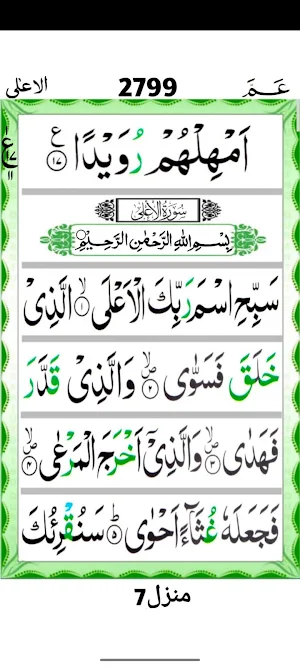 الاعلٰی 2799 عَمَّ
اَمْهِلْهُمْ رُوَيْدًا ﴿۱۷﴾ ع
ع ۱۷ ۱۱
سُوْرَةُ الْاَعْلٰى
بِسْمِ اللّٰهِ الرَّحْمٰنِ الرَّحِيْمِ
سَبِّحِ اسْمَ رَبِّكَ الْاَعْلَى ﴿۱﴾ۙ الَّذِىْ
خَلَقَ فَسَوّٰى ﴿۲﴾ۙ وَالَّذِىْ قَدَّرَ
فَهَدٰى ﴿۳﴾ۙ وَالَّذِىْٓ اَخْرَجَ الْمَرْعٰى ﴿۴﴾ۙ
فَجَعَلَهٗ غُثَآءً اَحْوٰى ﴿۵﴾ؕ سَنُقْرِئُكَ
منزل7